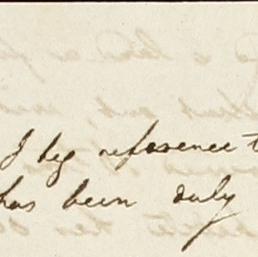 I beg reference t
has been duly